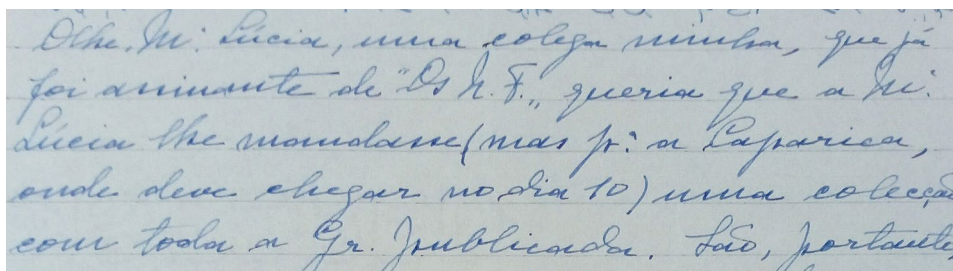 Olhe, M.ª Lúcia, uma colega minha, que já
foi assinante de "Os N. F.„ queria que a M.ª
Lúcia lhe mandasse (mas p.ª a Caparica,
onde deve chegar no dia 10) uma colecção
com toda a Gr. publicada. São, portanto,